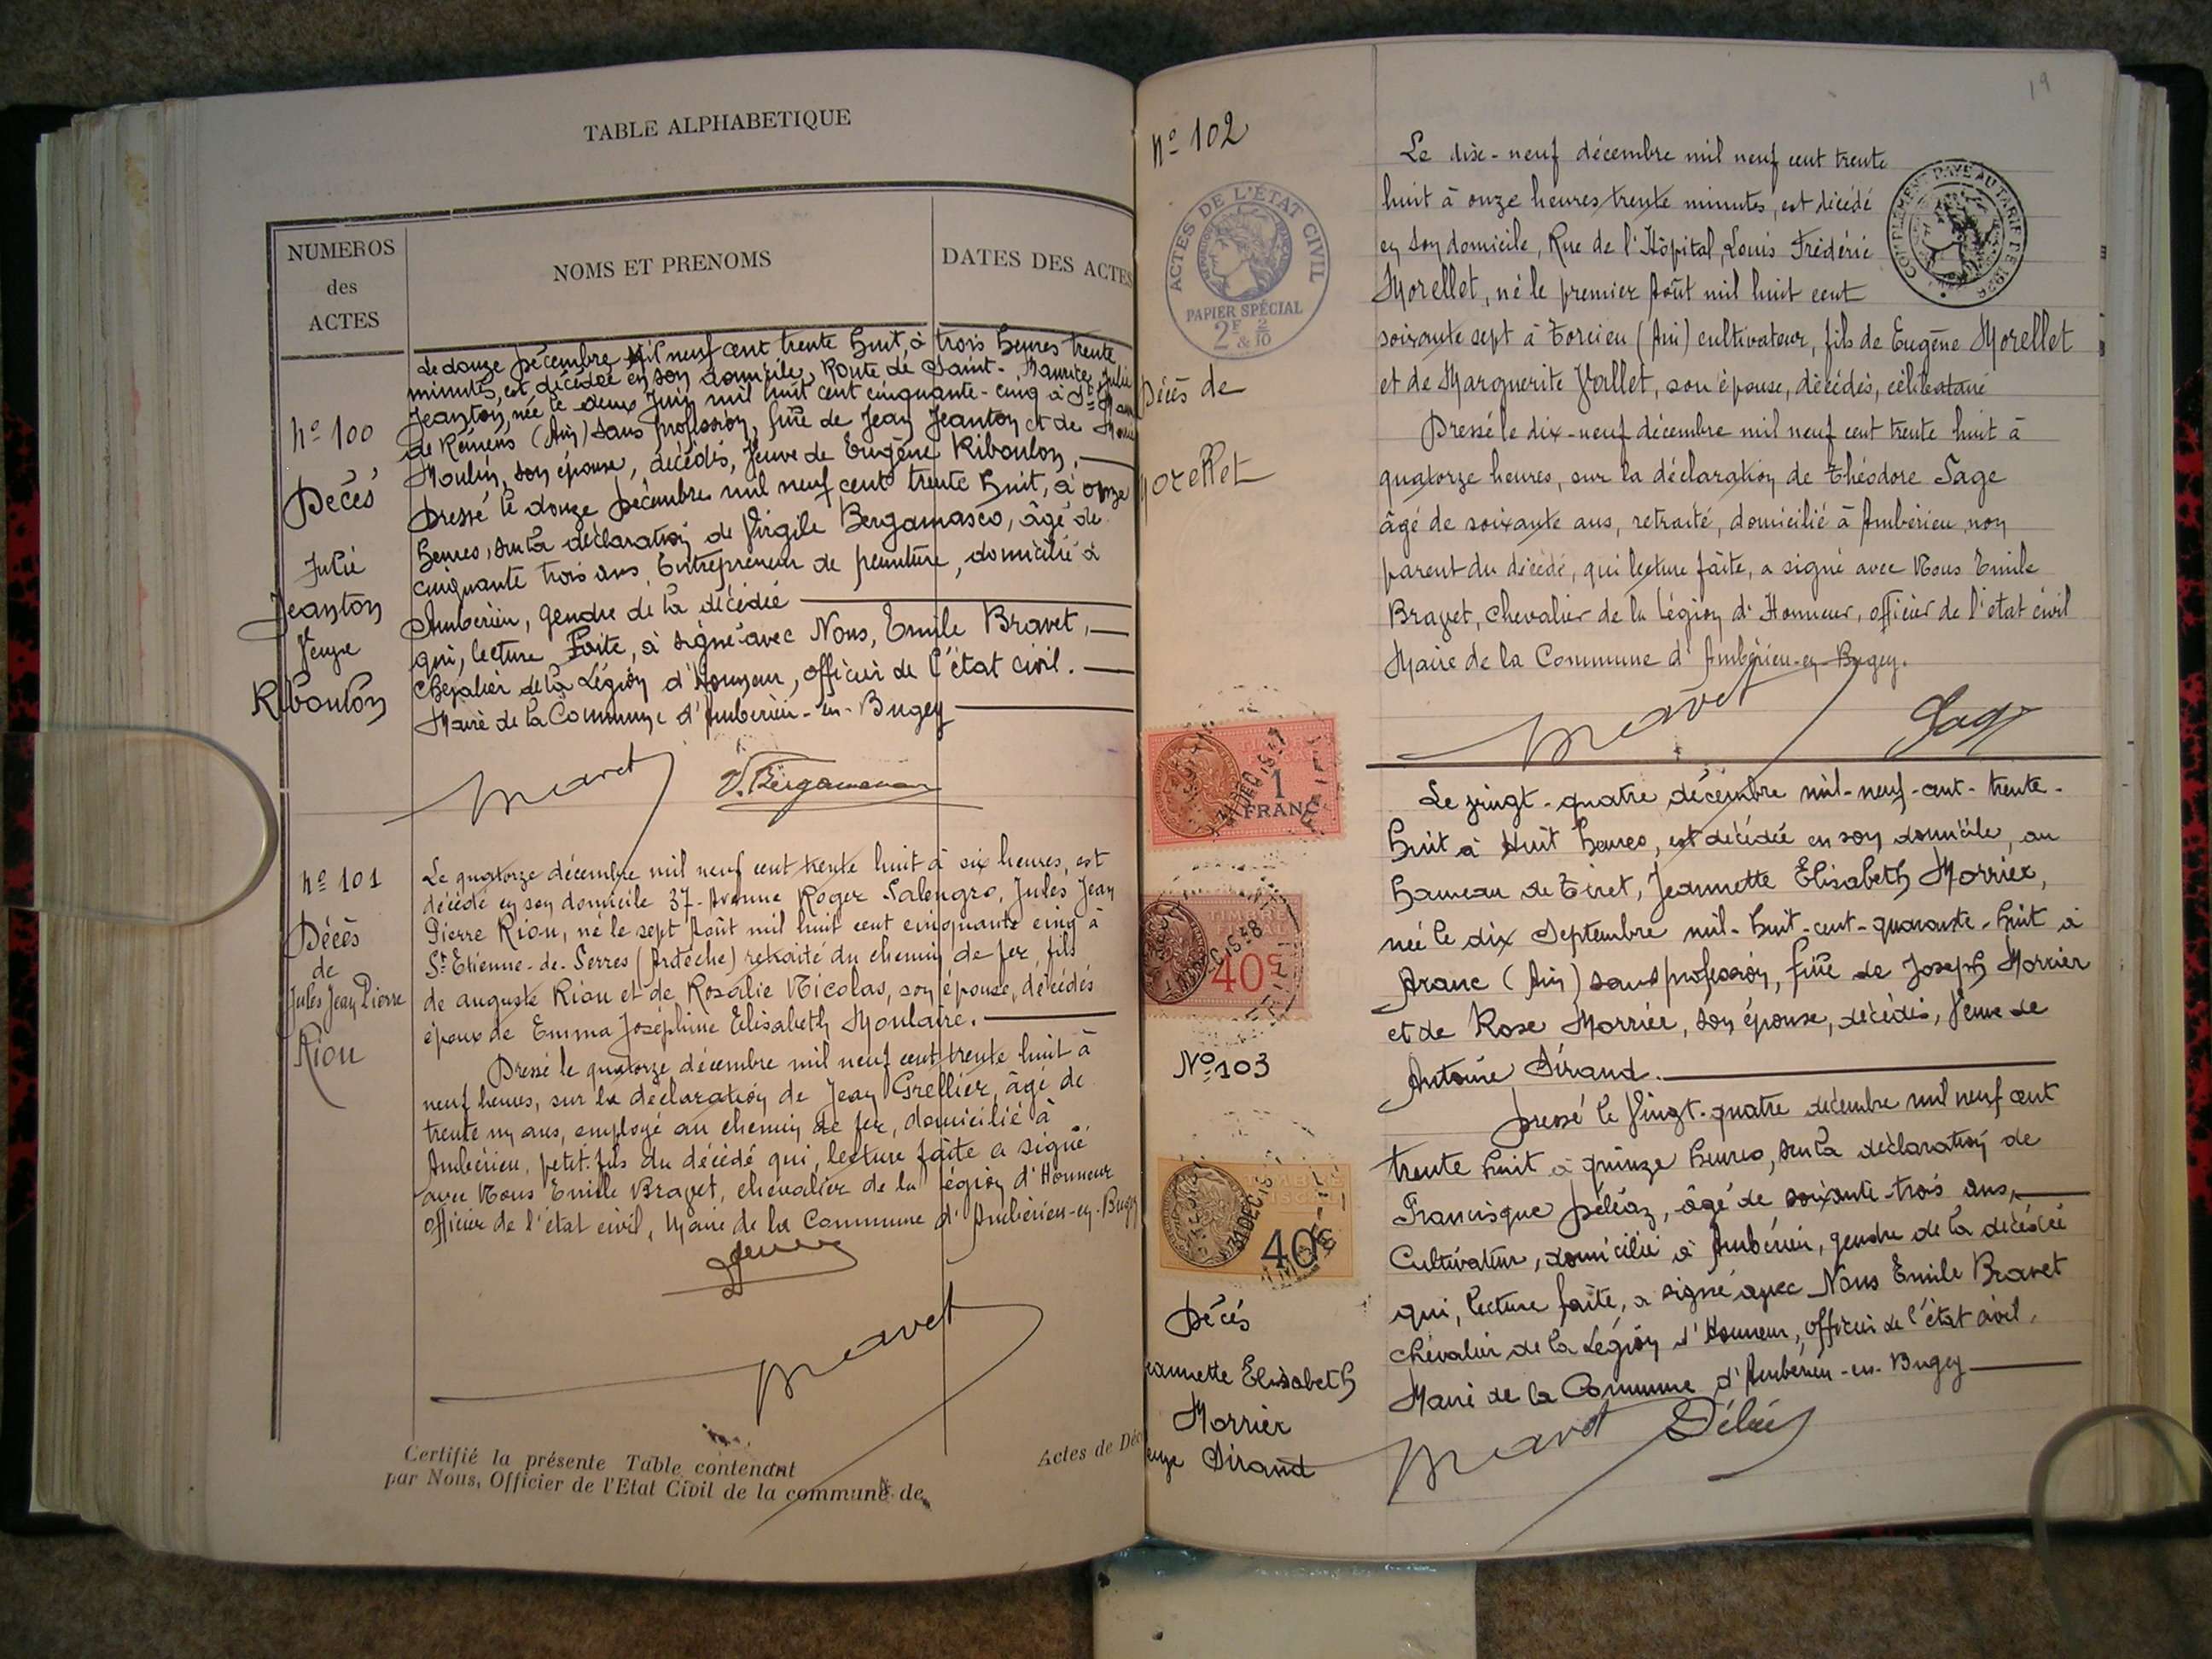 TABLE ALPHABETIQUE
NUMEROS
des
ACTES
NOMS ET PRENOMS
DATES DES ACTES
No 100
Décès
Julie
Jeanton
Veuve
Riboulon
Le douze Décembre Mil neuf cent trente huit, à trois heures trente
minutes, est décédée en son domicile, Route de Saint-Maurice, Julie
Jeanton, née le deux Juin mil huit cent cinquante-cinq à St
de Rémens (Ain) sans profession, fille de Jean Jeanton et de
Moulin, son épouse, décédés, Veuve de Eugène Riboulon.
Dressé le douze Décembre mil neuf cent trente huit, à onze
heures, sur la déclaration de Virgile Bergamasco, âgé de
cinquante trois ans, Entrepreneur de peinture, domicilié à
Ambérieu, gendre de la décédée
qui, lecture Faite, a signé avec Nous, Emile Bravet,
Chevalier de la Légion d'Honneur, officier de l'état civil.
Maire de la Commune d'Ambérieu-en-Bugey
Bravet
V. Bergamasco
No 101
Décès
de
Jules Jean Pierre
Riou
Le quatorze décembre mil neuf cent trente huit à six heures, est
décédé en son domicile 37 Avenue Roger Salengro, Jules Jean
Pierre Riou, né le sept Août mil huit cent cinquante cinq à
St Etienne-de-Serres (Ardèche) retraité du chemin de fer, fils
de auguste Riou et de Rosalie Nicolas, son épouse, décédés
époux de Emma Joséphine Elisabeth Moulaire.
Dressé le quatorze décembre mil neuf cent trente huit à
neuf heures, sur la déclaration de Jean Grellier, âgé de
trente un ans, employé au chemin de fer, domicilié à
Ambérieu, petit-fils du décédé qui, lecture faite a signé
avec Nous Emile Bravet, chevalier de la légion d'Honneur
officier de l'état civil, Maire de la Commune d'Ambérieu-en-Bugey
Bravet
Certifié la présente Table contenant
Actes de Déc
par Nous, Officier de l'Etat Civil de la commune de
19
No 102
ACTES DE L'ÉTAT CIVIL
PAPIER SPÉCIAL
2F & 2/10
Décès de
Morellet
COMPLEMENT PAYE AU TARIF DE 1926
Le dix-neuf décembre mil neuf cent trente
huit à onze heures trente minutes, est décédé
en son domicile, Rue de l'Hôpital, Louis Frédéric
Morellet, né le premier Août mil huit cent
soixante sept à Torcieu (Ain) cultivateur, fils de Eugène Morellet
et de Marguerite Vallet, son épouse, décédés, célibataire
Dressé le dix-neuf décembre mil neuf cent trente huit à
quatorze heures, sur la déclaration de Théodore Sage
âgé de soixante ans, retraité, domicilié à Ambérieu, non
parent du décédé, qui lecture faite, a signé avec Nous Emile
Bravet, Chevalier de la Légion d'Honneur, officier de l'état civil
Maire de la Commune d'Ambérieu-en-Bugey.
Bravet
Sage
1
FRANC
TIMBRE
FISCAL
40c
No 103
31 DEC
40c
Décès
eannette Elisabeth
Morrier
euve Sirand
Le vingt-quatre décembre mil-neuf-cent-trente-
huit à Huit heures, est décédée en son domicile, au
hameau de Tiret, Jeannette Elisabeth Morrier,
née le dix Septembre mil-huit-cent-quarante-huit à
Aranc (Ain) sans profession, fille de Joseph Morrier
et de Rose Morrier, son épouse, décédés, Veuve de
Antoine Sirand.
Dressé le Vingt-quatre décembre mil neuf cent
trente huit à quinze heures, sur la déclaration de
Francisque Péléaz, âgé de soixante-trois ans,
Cultivateur, domicilié à Ambérieu, gendre de la décédée
qui, lecture faite, a signé avec Nous Emile Bravet
chevalier de la Légion d'Honneur, officier de l'état civil,
Maire de la Commune d'Ambérieu-en-Bugey
Bravet